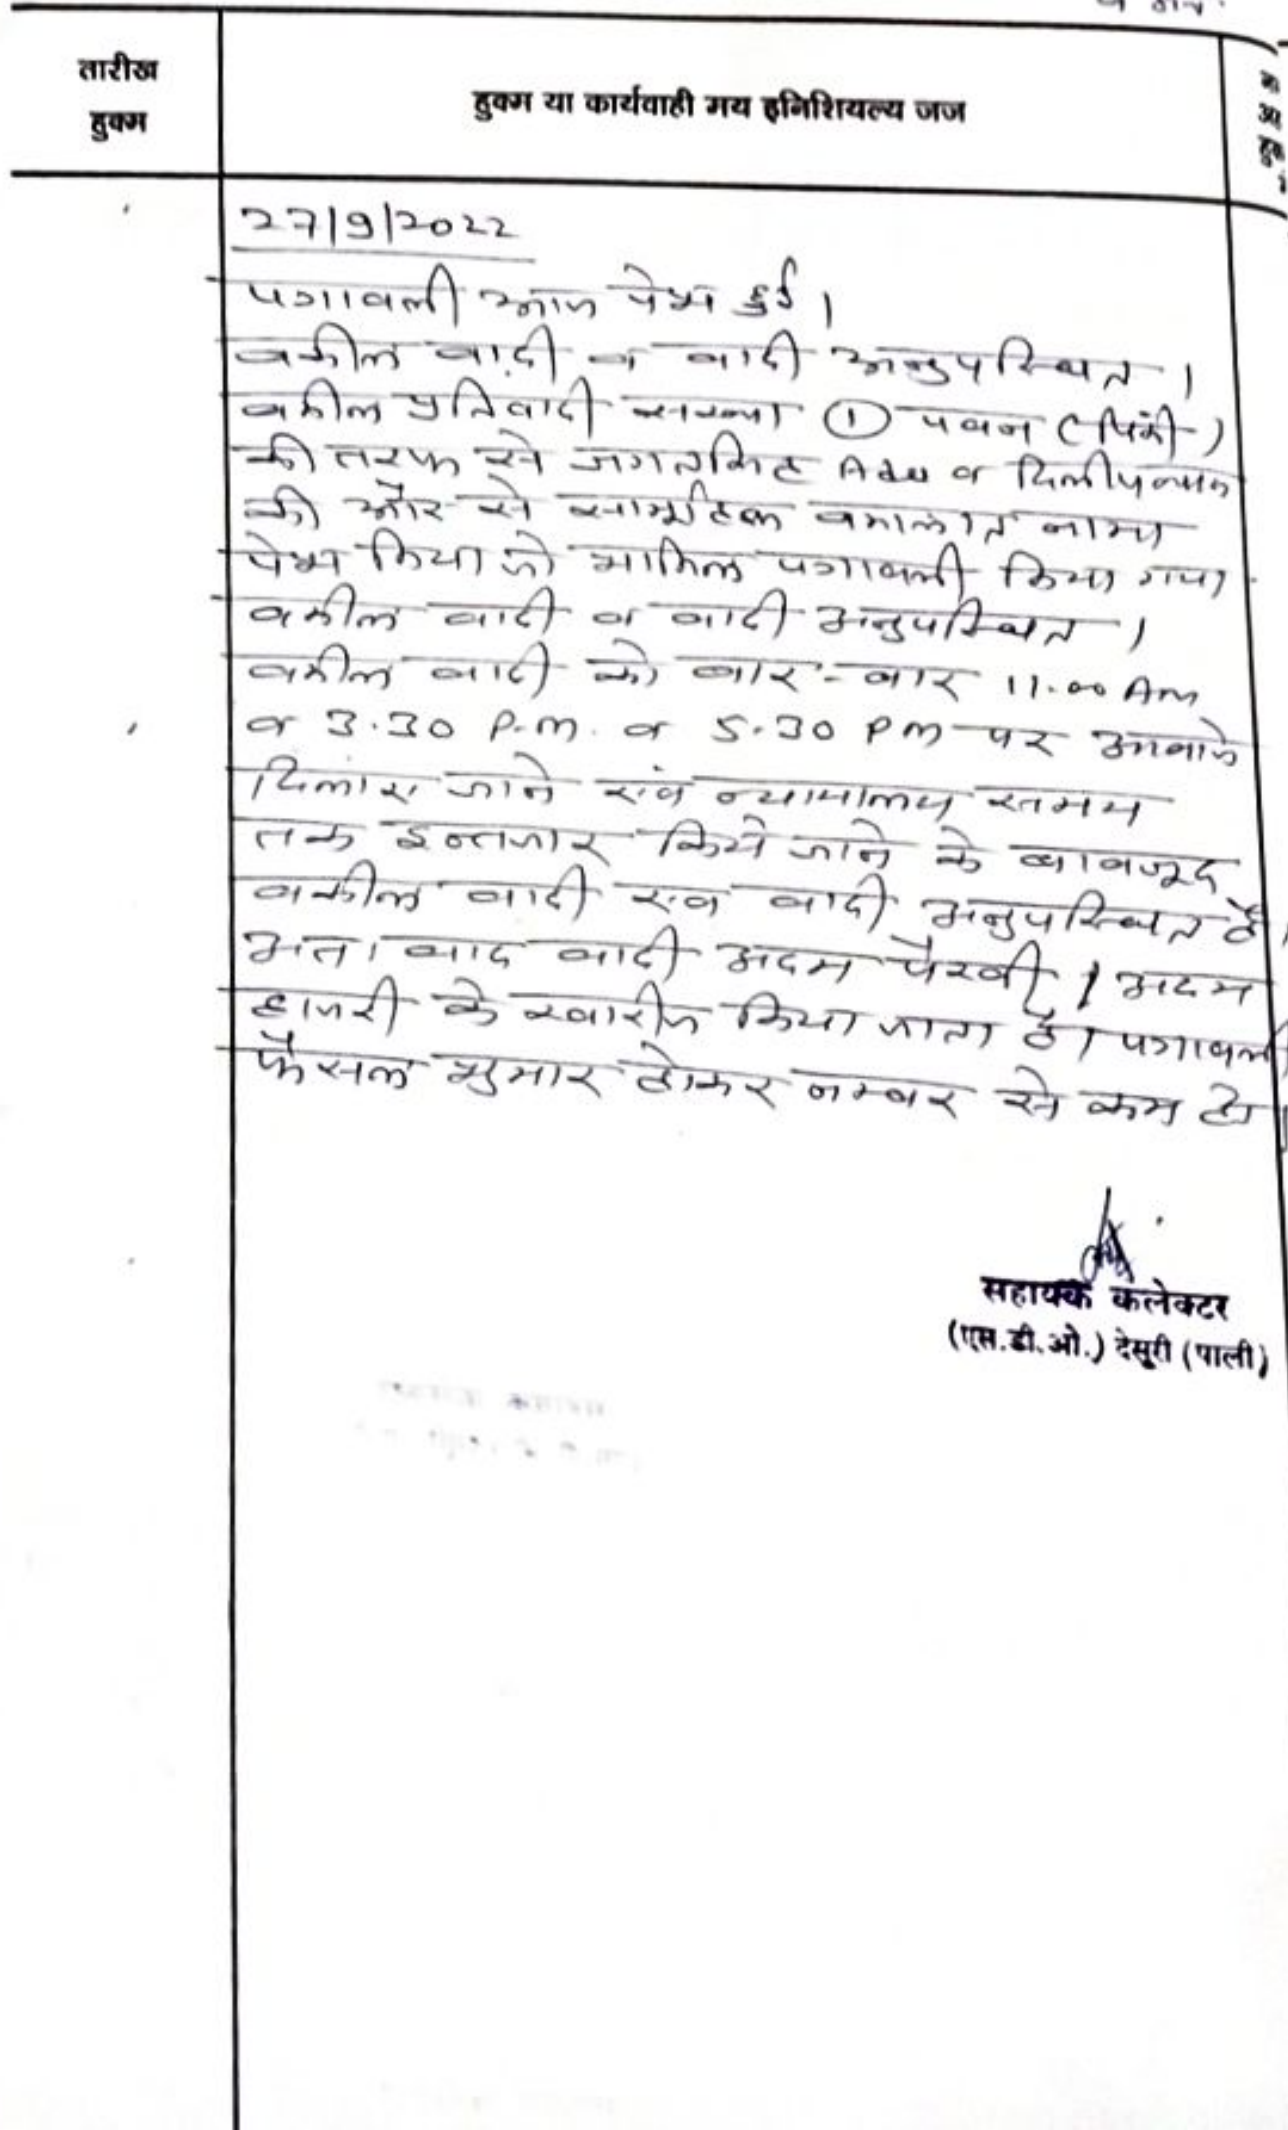 तारीख
हुक्म
हुक्म या कार्यवाही मय इनिशियल्य जज
27/9/2022
पत्रावली आज पेश हुई।
वकील वादी व वादी अनुपस्थित।
वकील प्रतिवादी संख्या ① पवन (पिंकी)
की तरफ से Adv व दिलीप व्यास
की और से सामूहिक वकालत नामा
पेश किया जो शामिल पत्रावली किया गया
वकील वादी व वादी अनुपस्थित।
वकील वादी को बार-बार 11.00 Am
व 3.30 P.m. व 5.30 pm पर आवाजे
दिलाए जाने एवं न्यायालय समय
तक इन्तजार किये जाने के बावजूद
वकील वादी एवं वादी अनुपस्थित है।
अतः वाद वादी अदम पैरवी / अदम
हाजरी के खारीज किया जाता है। पत्रावली
फैसल शुमार होकर नम्बर से कम हो।
सहायक कलेक्टर
(एस.डी.ओ.) देसूरी (पाली)